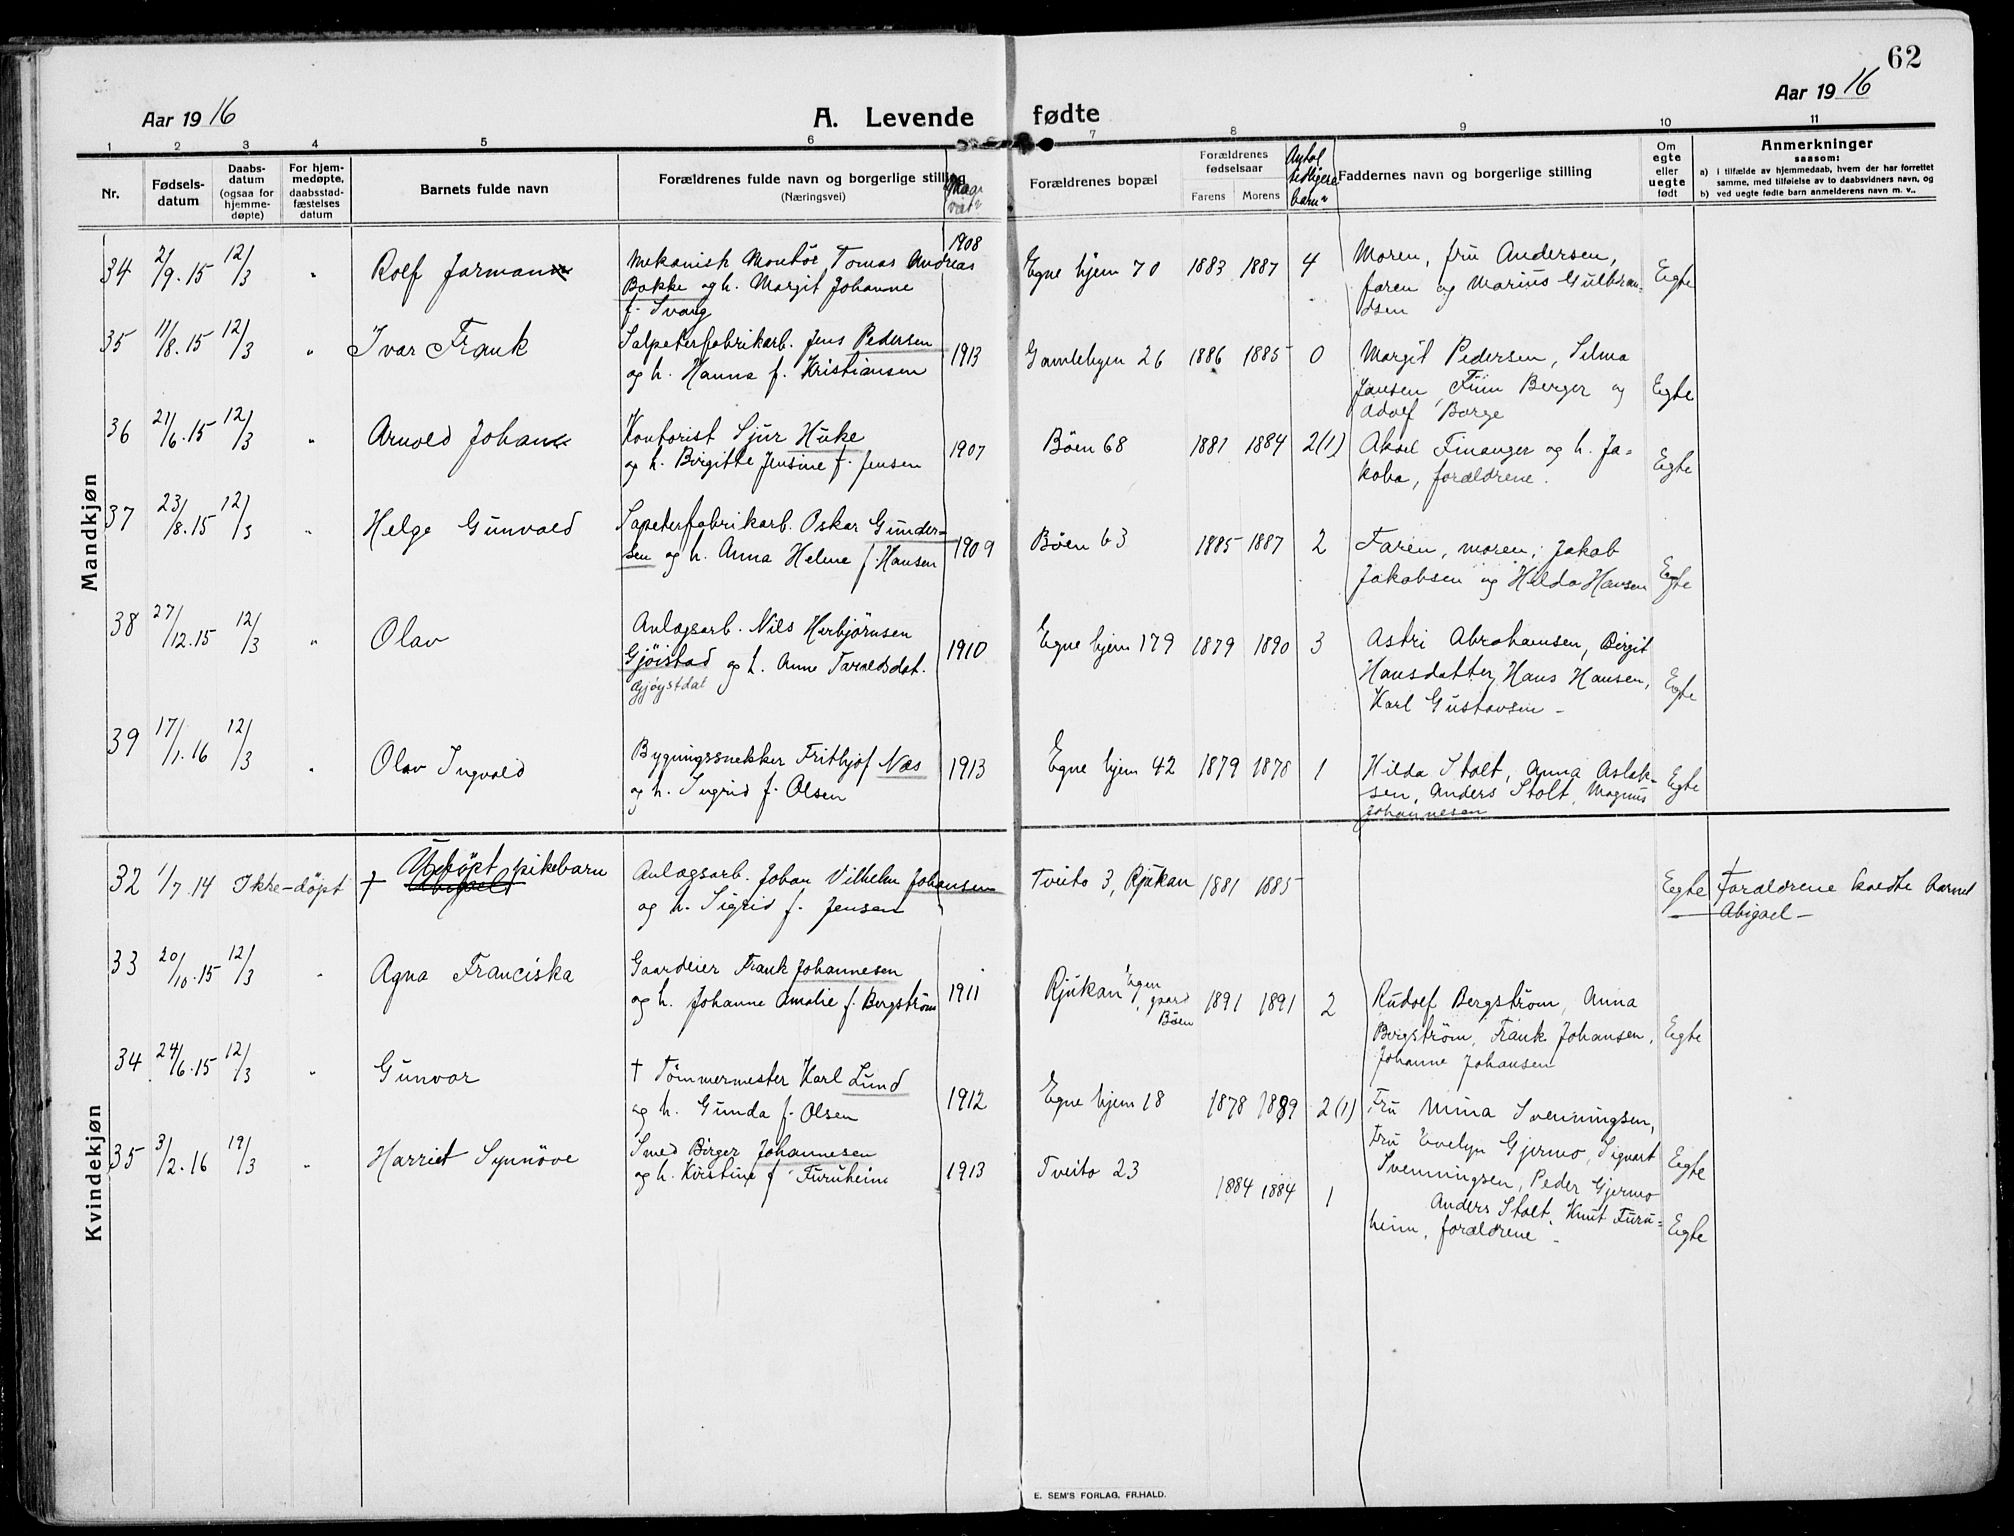 62
Aar 1916
A. Levende fødte
Aar 1916
1 2 3 4 5 6 7 8 9 10 11
Nr.
Fødsels-
datum
Daabs-
datum
(ogsaa for
hjemme-
døpte)
For hjem-
medøpte,
daabsstad-
fæstelses
datum
Barnets fulde navn
Forældrenes fulde navn og borgerlige stilling
(Næringsvei)
Forældrenes bopæl
Forældrenes
fødselsaar
Farens Morens
Antal
tidligere
barn
Faddernes navn og borgerlige stilling
Om
egte
eller
uegte
født
Anmerkninger
saasom:
a) i tilfælde av hjemmedaab, hvem der har forrettet
samme, med tilføielse av to daabsvidners navn, og
b) ved uegte fødte barn anmelderens navn m. v..
Mandkjøn
34 2/9.15 12/3 " Rolf Jarmann
Mekanisk Montør Tomas Andreas
Bakke og h. Margit Johanne
f. Svang
1908 Egne hjem 70 1883 1887 4
Moren, fru Andersen,
faren og Marius Gulbran-
dsen
Egte
35 11/8.15 12/3 " Ivar Frank
Salpeterfabrikarb. Jens Pedersen
og h. Hanna f. Kristiansen
1913 Gamlebyen 26 1886 1885 0
Margit Pedersen, Selma
Jansen, Finn Berger og
Adolf Borge
Egte
36 21/6.15 12/3 " Arnold Johan
Kontorist Sjur Huke
og h. Birgitte Jensine f. Jensen
1907 Bøen 68 1881 1884 2(1)
Aksel Finanger og h. Ja-
koba, forældrene.
Egte
37 23/8.15 12/3 " Helge Gunvald
Sapeterfabrikarb. Oskar Gunder-
sen og h. Anna Helene f. Hansen
1909 Bøen 63 1885 1887 2
Faren, moren, Jakob
Jakobsen og Hilda Hansen
Egte
38 27/12.15 12/3 " Olav
Anlægsarb. Nils Herbjørnsen
Gjøistad og h. Anne Taraldsdat.
Gjøystdal
1910 Egne hjem 179 1879 1890 3
Astri Abrahamsen, Birgit
Hansdatter, Hans Hansen,
Karl Gustavsen -
Egte
39 17/1.16 12/3 " Olav Ingvald
Bygningssnekker Fritbjof Næs
og h. Ingrid f. Olsen
1913 Egne hjem 42 1879 1878 1
Hilda Stolt, Anna Aslak-
sen, Anders Stolt, Magnus
Johannesen
Egte
Kvindekjøn
32 1/7.14 Ikke-døpt † Udøpt pikebarn
Abigael
Anlægsarb. Johan Vilhelm Johansen
og h. Sigrid f. Jensen
Tveito 3, Rjukan 1881 1885
Egte
Forældrene kaldte barnet
Abigael -
33 20/10.15 12/3 " Agna Franciska
Gaardeier Frank Johannesen
og h. Johanne Amalie f. Bergstrøm
1911 Rjukan Egen
gaard
Bøen
1891 1891 2
Rudolf Bergstrøm, Anna
Bergstrøm, Frank Johansen,
Johanne Johansen
Egte
34 24/6.15 12/3 " Gunvor
† Tømmermester Karl Lund
og h. Gunda f. Olsen
1912 Egne hjem 18 1878 1889 2(1)
Fru Mina Svenningsen,
Fru Evelyn Gjermo, Sigvart
Svenningsen, Peder Gjermo
Egte
35 3/2.16 19/3 " Harriet Synnøve
Smed Birger Johannesen
og h. Kristine f. Furuheim
1913 Tveito 23 1884 1884 1
Anders Stolt, Knut Furu-
heim, forældrene -
Egte
E. SEM'S FORLAG, FR.HALD.